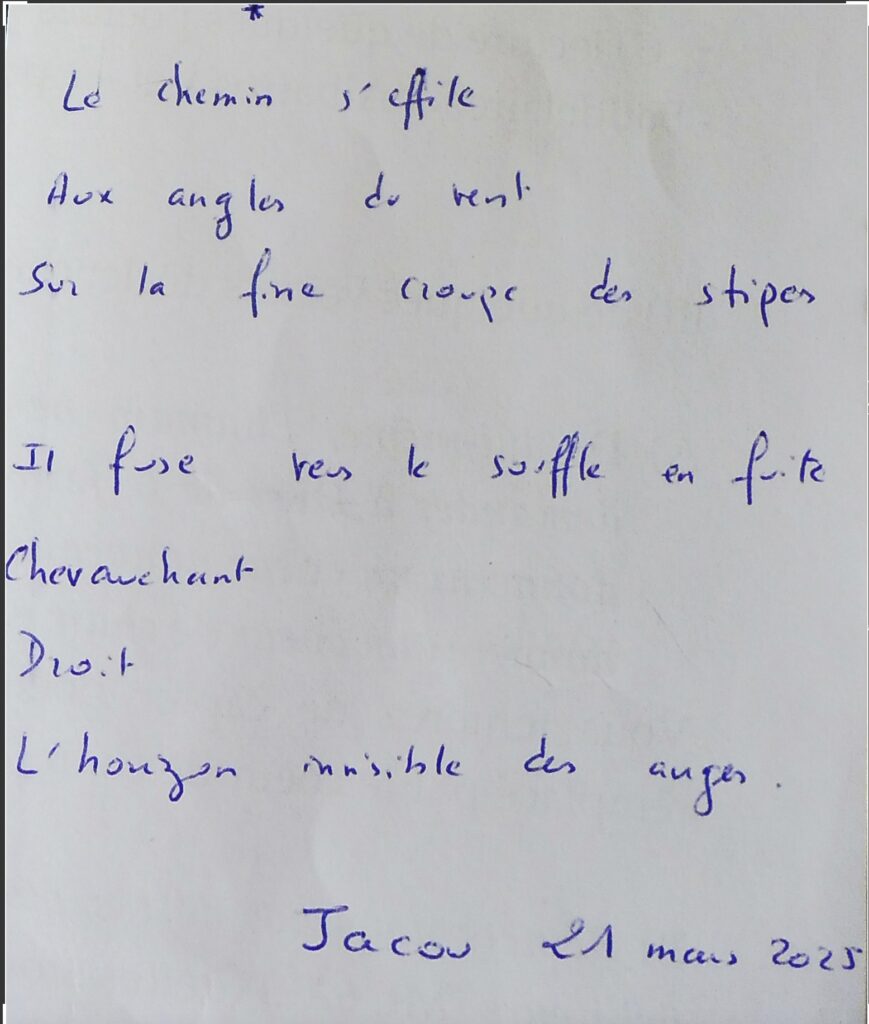 *
Le chemin s'effile
Aux angles du vent
Sur la fine croupe des stipes
Il fuse vers le souffle en fuite
Chevauchant
Droit
L'horizon invisible des anges.
Jacou 21 mars 2025